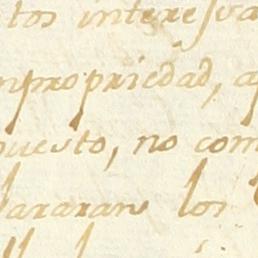 tos interesva
mpropriedad, a
puesto, no com
lararan los